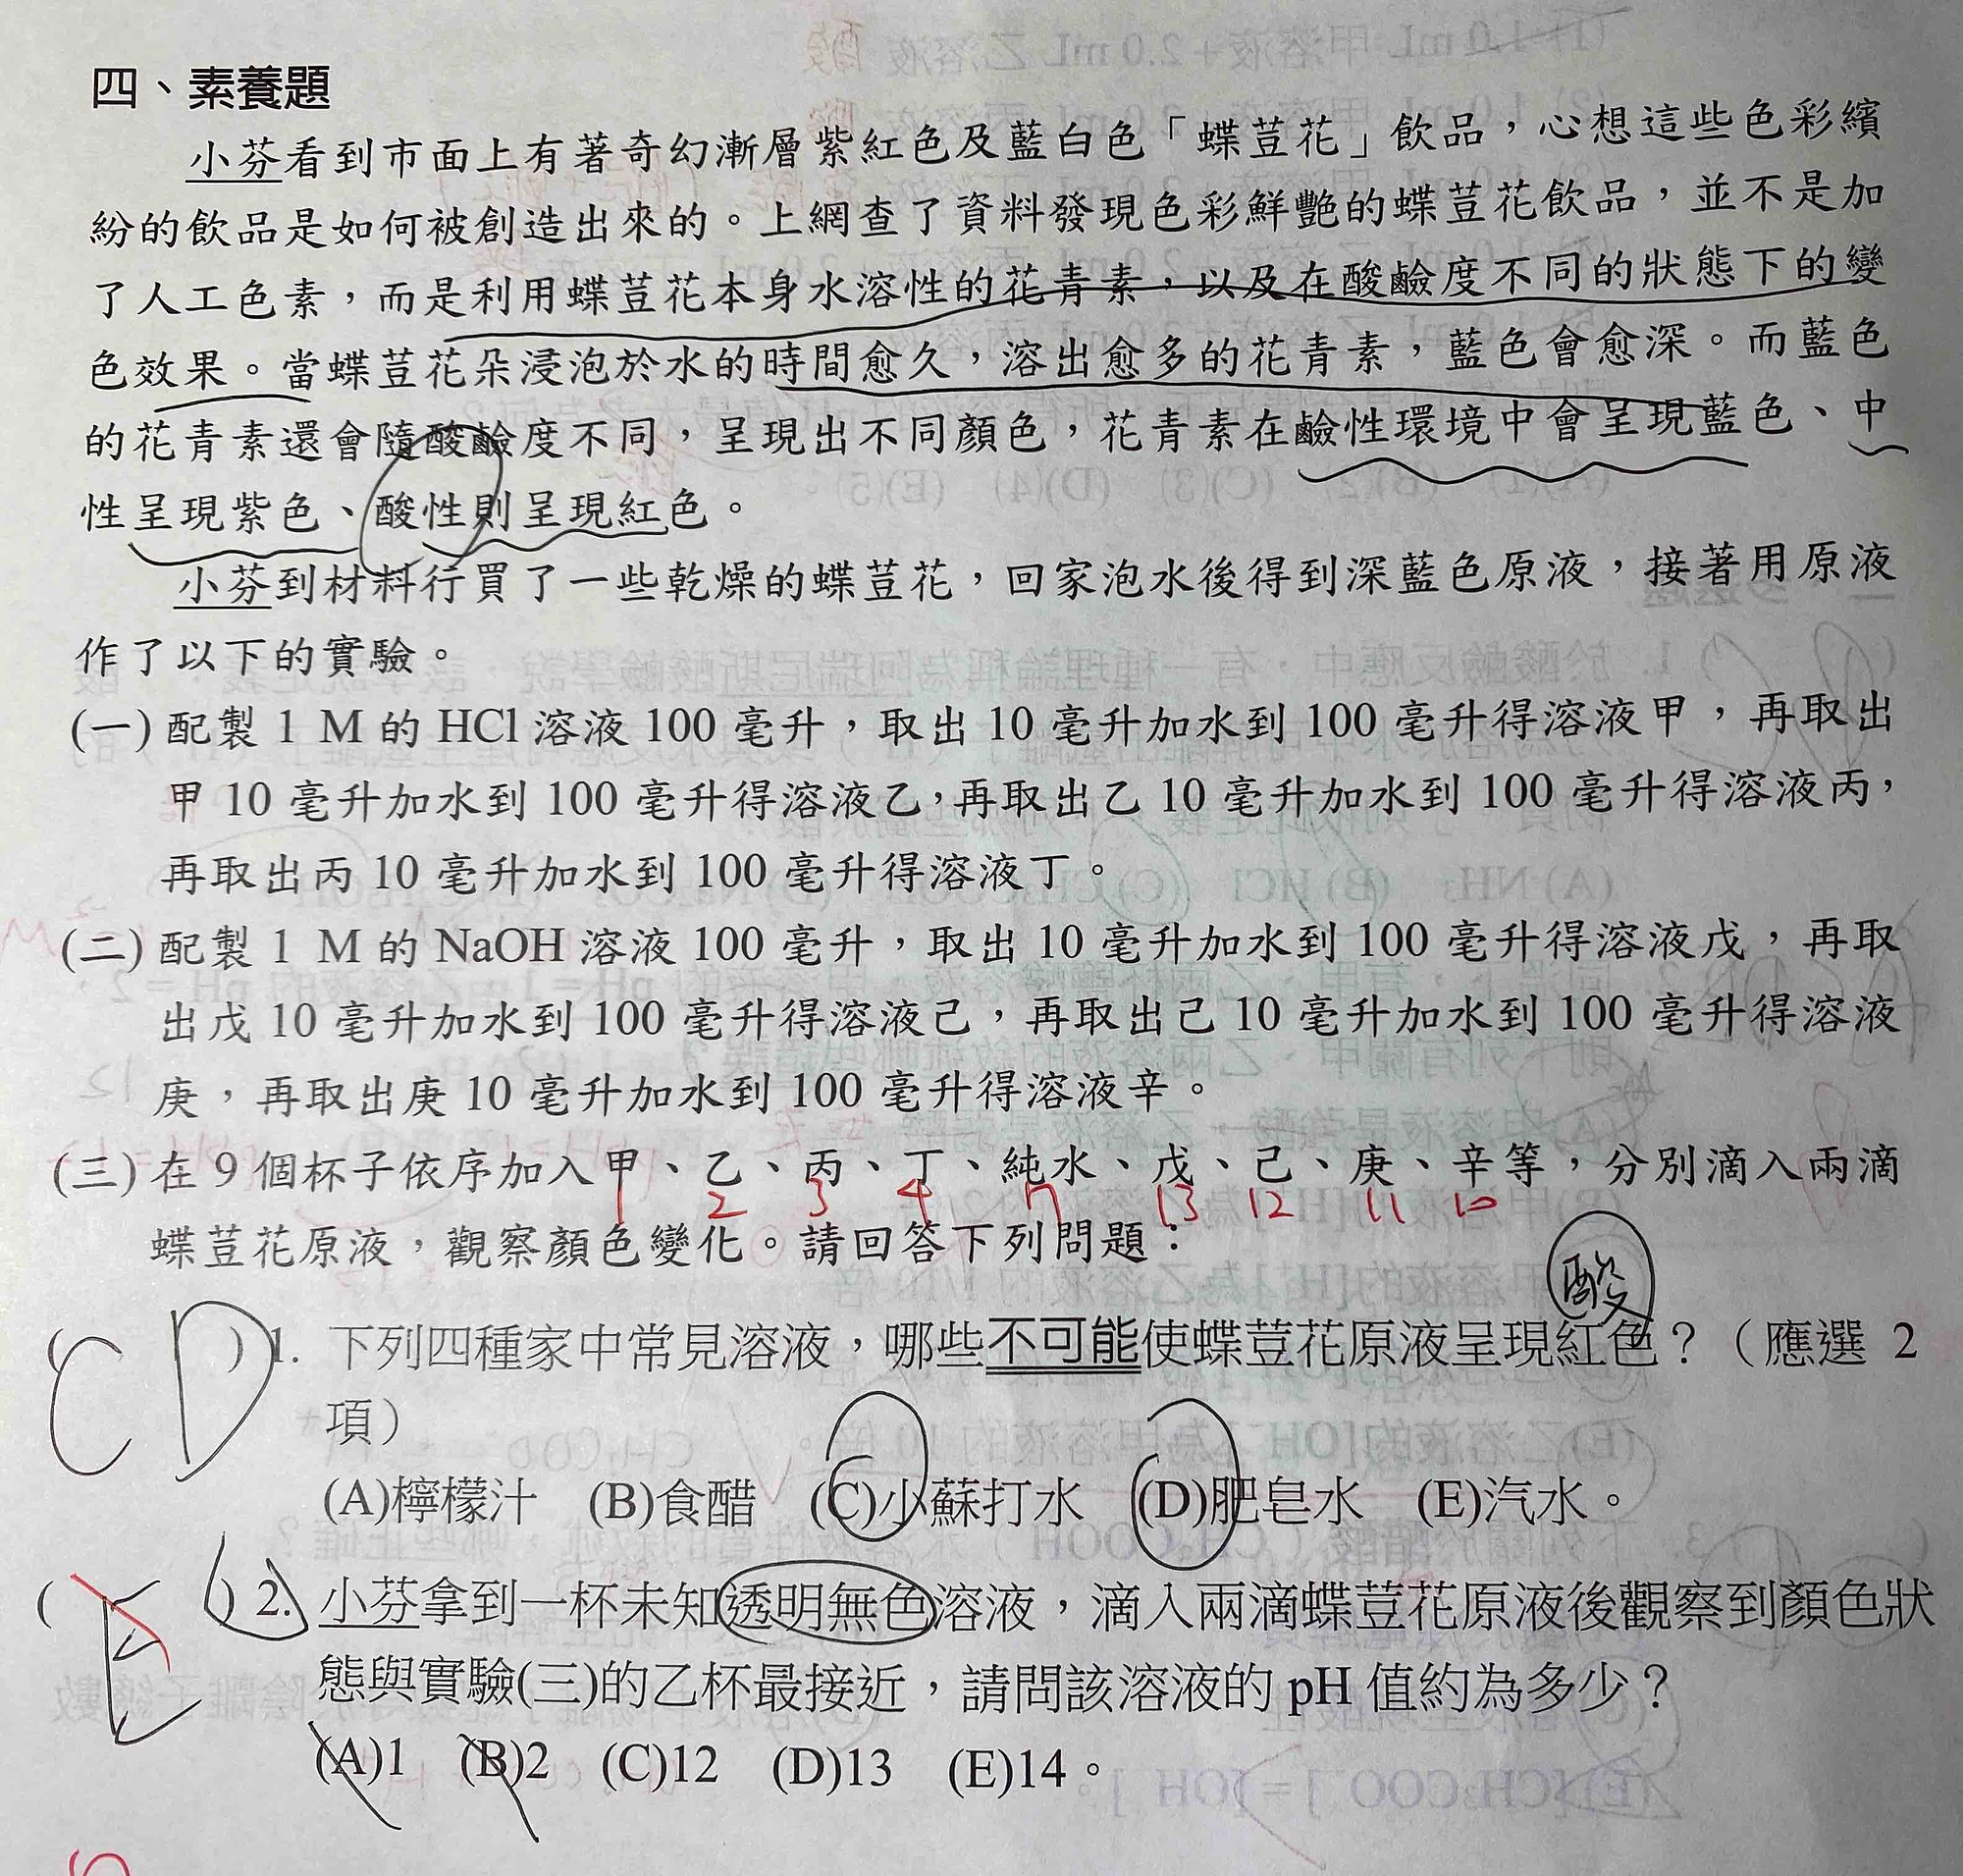 四、素養題
小芬看到市面上有著奇幻漸層紫紅色及藍白色「蝶荳花」飲品，心想這些色彩繽
紛的飲品是如何被創造出來的。上網查了資料發現色彩鮮艷的蝶荳花飲品，並不是加
了人工色素，而是利用蝶荳花本身水溶性的花青素，以及在酸鹼度不同的狀態下的變
色效果。當蝶荳花朵浸泡於水的時間愈久，溶出愈多的花青素，藍色會愈深。而藍色
的花青素還會隨酸鹼度不同，呈現出不同顏色，花青素在鹼性環境中會呈現藍色、中
性呈現紫色、酸性則呈現紅色。
小芬到材料行買了一些乾燥的蝶荳花，回家泡水後得到深藍色原液，接著用原液
作了以下的實驗。
(一)配製 1 M 的 HCl 溶液 100 毫升，取出 10 毫升加水到 100 毫升得溶液甲，再取出
甲 10 毫升加水到 100 毫升得溶液乙，再取出乙 10 毫升加水到 100 毫升得溶液丙，
再取出丙 10 毫升加水到 100 毫升得溶液丁。
(二)配製 1 M 的 NaOH 溶液 100 毫升，取出 10 毫升加水到 100 毫升得溶液戊，再取
出戊 10 毫升加水到 100 毫升得溶液己，再取出己 10 毫升加水到 100 毫升得溶液
庚，再取出庚 10 毫升加水到 100 毫升得溶液辛。
(三)在 9 個杯子依序加入甲、乙、丙、丁、純水、戊、己、庚、辛等，分別滴入兩滴
1 2 3 4 7 13 12 11 10
蝶荳花原液，觀察顏色變化。請回答下列問題：
酸
( CD ) 1. 下列四種家中常見溶液，哪些不可能使蝶荳花原液呈現紅色？（應選 2
項）
(A)檸檬汁 (B)食醋 (C)小蘇打水 (D)肥皂水 (E)汽水。
( E ) 2. 小芬拿到一杯未知透明無色溶液，滴入兩滴蝶荳花原液後觀察到顏色狀
態與實驗(三)的乙杯最接近，請問該溶液的 pH 值約為多少？
(A)1 (B)2 (C)12 (D)13 (E)14。